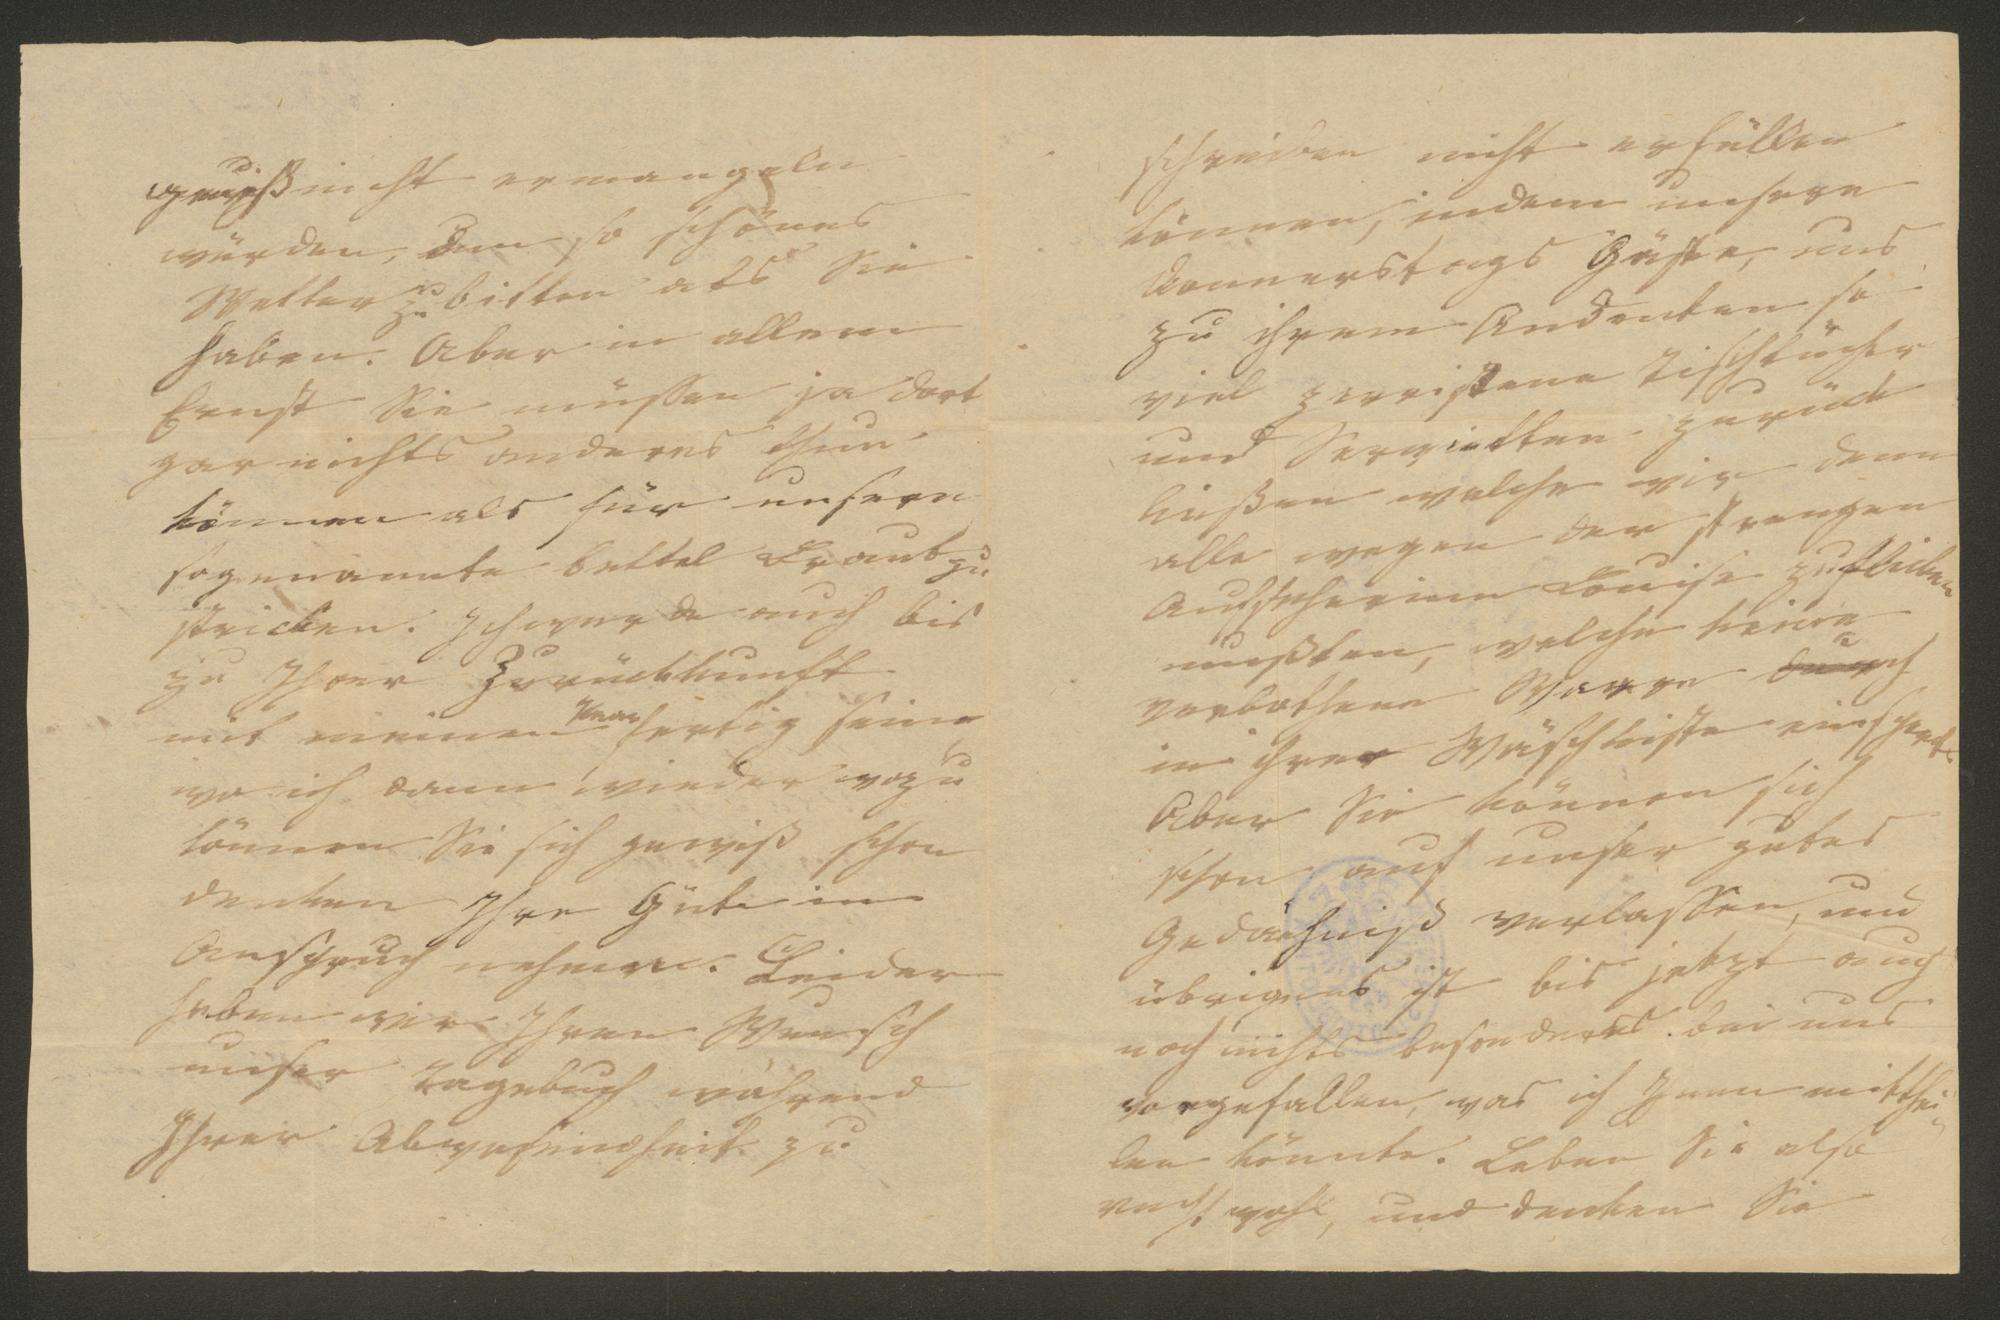 gewiß nicht ermangeln
würden, um so schönes
Wetter zu bitten als Sie
haben. Aber in allem
Ernst Sie müssen ja dort
gar nichts anderes thun
können als für unsern
sogenannte bettel Braut zu
stricken. Ich werde auch bis
zu Ihrer Zurückkunft
mit meinem Paar fertig sein,
wo ich dann wieder wozu
können Sie sich gewiß schon
denken Ihre Güte in
Anspruch nehmen. Leider
haben wir Ihren Wunsch
unser Tagebuch während
Ihrer Abwesendheit zu
schreiben nicht erfüllen
können, indem unsere
Donnerstags Gäste, uns
zu ihrem Andenken so
viel zerrißene Tischtücher
und Servietten zurück
ließen welche wir denn
alle wegen der strengen
Aufseherinn Louise zuflicken
mußten, welche keine
verbothene Waare durch
in ihrer Wäschkiste
Aber Sie können sich
schon auf unser gutes
Gedächniß verlassen, und
übrigens ist bis jetzt auch
noch nichts besonderes bei uns
vorgefallen, was ich Ihnen mitthei-
len könnte. Leben Sie also
recht wohl, und denken Sie